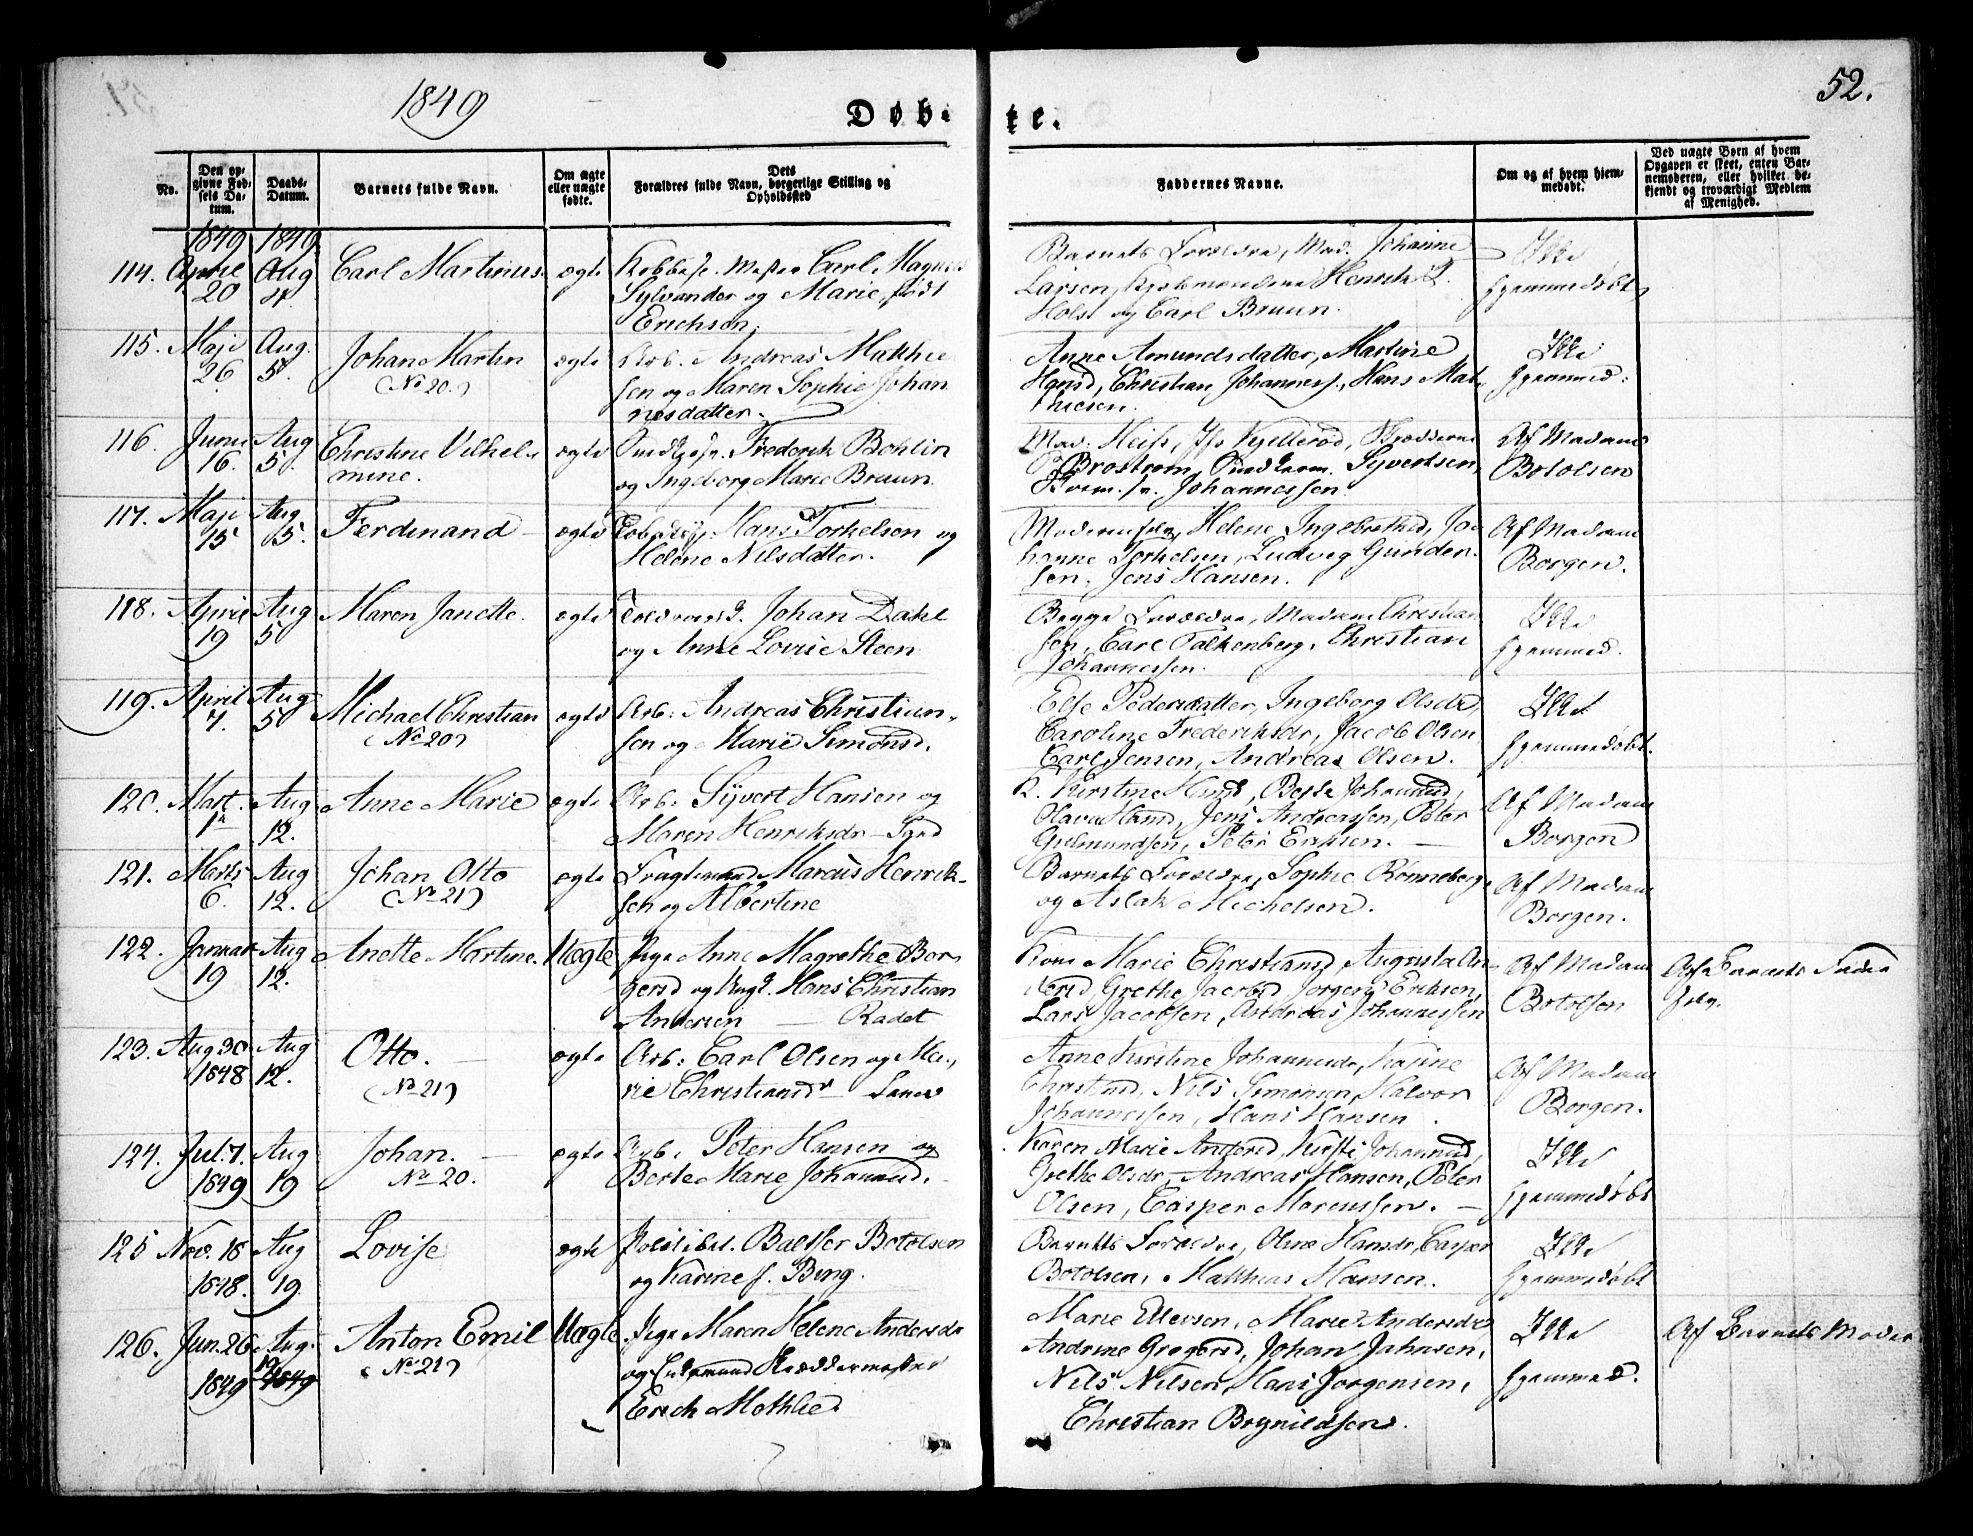 1849
52.
Døb-
te.
No.
Den op-
givne Fød-
sels Da-
tum.
Daabs-
Datum.
Barnets fulde Navn.
Om ægte
eller uægte
fødte.
Dets
Forældres fulde Navn, borgerlige Stilling og
Opholdssted
Faddernes Navne.
Om og af hvem hjem-
medøbt.
Ved uægte Børn af hvem
Opgaven er skeet, enten Bar-
nemoderen, eller hvilket be-
kjendt og troværdigt Medlem
af Menighed.
1849 1849
114. April 20 Aug Carl Martinus ægte Mester Carl Magnus
Sylvander og Marie, født
Erichsen,
Barnets Forældre, Mad. Johanne
Larsen, Henrik
Holst og Carl Bruun.
Ikke
hjemmedøbt
115. Maji 26 Aug. 5. Johan Martin
(No 20.)
ægte Arb. Andreas Matthie
sen og Maren Sophie Johan
nesdatter.
Anne Amundsdatter, Martine
Hansd, Christian Johanness., Hans Mat-
thiesen.
Ikke
hjemmed:
116. Junii 16. Aug 5. Christine Vilhel-
mine.
ægte Frederik Bohlin
og Ingeborg Marie Bruun.
Mad.
Brostrøm, Syvertsen,
Johannessen.
Af Madam
Botolsen
117. Maji 15 Aug. 5. Ferdinand ægte Hans Torkelsen og
Helene Nilsdatter.
Moderen selv, Helene Ingebrethsd, Jo-
hanne Torkelsen, Ludvig Gunder-
sen, Jens Hansen.
Af Madam
Borgen.
118. April 19 Aug 5 Maren Janette. ægte Johan Dahl
og Anne Lovise Steen
Begge Forældre, Madam Christian
sen, Carl Falkenberg, Christian
Johannessen.
Ikke
hjemmed.
119. April 7. Aug 5 Michael Christian
(No 20)
ægte Arb: Andreas Christian-
sen og Marie Simonsd.
Else Pedersdatter, Ingeborg Olsdr,
Caroline Frederiksdr, Jacob Olsen
Carl Jensen, Andreas Olsen.
Ikke
hjemmedøbt.
120. Mart. Aug 12. Anne Marie ægte Arb: Syvert Hansen og
Maren Henriksdr
Jens Andreassen, Peter
Gulmundsen, Peter Eriksen.
Af Madam
Borgen
121. Marts 6. Aug 12. Johan Otto
(No 21)
ægte Fragtemand Marcus Henrik-
sen og Albertine
Barnets Forældre, Sophie Rønneberg
og Aslak Michelsen.
Af Madam
Borgen.
122. Januar 19 Aug 12. Anette Martine. Uægte Pige Anne Magrethe Bor
gersd og Ungk. Hans Christian
Andersen
Kone Marie Christiansd, Augusta An-
dersd Grethe Jacobsd Jørgen Eriksen,
Lars Jacobsen, Andreas Johannessen
Af Madam
Botolsen
Af Barnets Fader
selv.
123. Aug 30 1848 Aug 12. Otto.
(No 21)
ægte Arb: Carl Olsen og Ma-
rie Christiansdr
Anne Kirstine Johannesdr, Karine
Nils Simonsen, Halvor
Johannessen, Hans Hansen.
Af Madam
Borgen.
124. Jul. 7. 1849 Aug 19 Johan.
No 20.
ægte Arb. Peter Hansen og
Berte Marie Johannesd.
Karen Marie Andersd, Kirsti Johannesd,
Grethe Olsdr, Andreas Hansen, Peter
Olsen, Casper Marcussen.
Ikke
hjemmedøbt
125 Nov. 18 1848. Aug 19. Lovise ægte Politibet. Baltser Botolsen
og Karine f. Bing.
Barnets Forældre, Oline Hansdr, Casper
Botolsen, Matthias Hansen.
Ikke
hjemmedøbt
126. Jun. 26 1849 Aug. 19 1849 Anton Emil
(No 21)
Uægte. Pige Maren Helene Andersdr
og Skræddermester
Erich
Marie Ellevsen, Marie Andersdr
Andrine Gregersd, Johan Jahnsen,
Nils Nilsen, Hans Jørgensen,
Christian Brynildsen.
Ikke
hjemmed.
Af Barnets Moder